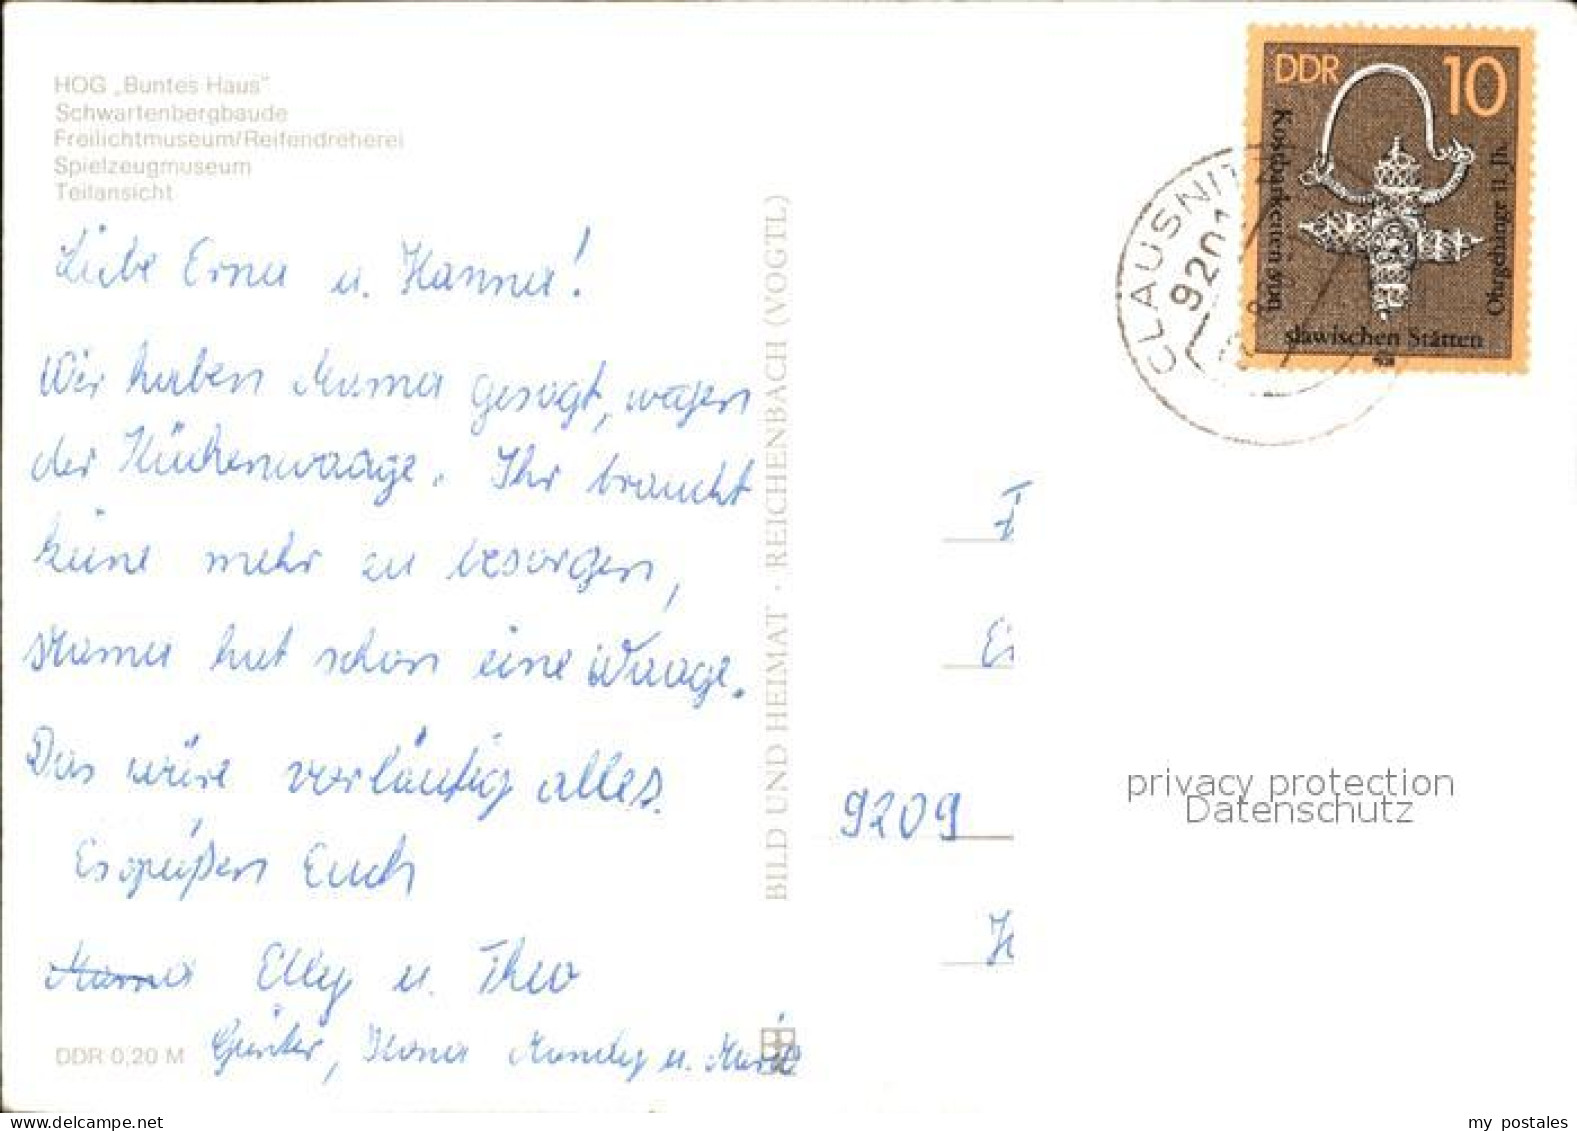 HOG „Buntes Haus"
Schwartenbergbaude
Freilichtmuseum/Reifendreherei
Spielzeugmuseum
Teilansicht
Liebe Erna u. Hanna!
Wir haben Mama gesagt, wegen
der Küchenwaage. Ihr braucht
keine mehr zu besorgen,
Mama hat schon eine Waage.
Das wäre vorläufig alles.
Es grüßen Euch
Mama Elly u. Theo
Günter, Ilona Mandy u.
DDR 0,20 M
BILD UND HEIMAT · REICHENBACH (VOGTL)
CLAUSNITZ
9201
DDR 10
Kostbarkeiten von
slawischen Stätten
Ohrgehänge 11. Jh.
9209
privacy protection
Datenschutz
www.delcampe.net
my_postales